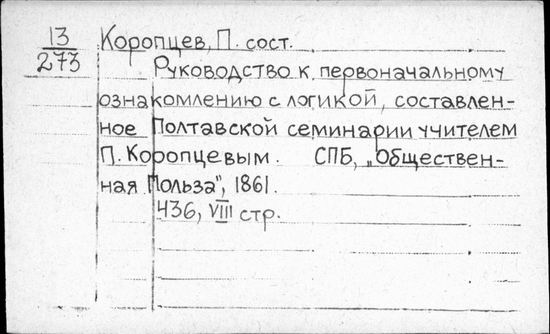 13
273
Коропцев, П. сост.
Руководство к первоначальному
ознакомлению с логикой, составлен-
ное Полтавской семинарии учителем
П. Коропцевым. СПБ, „Обществен-
ная Польза", 1861.
436, VIII стр.